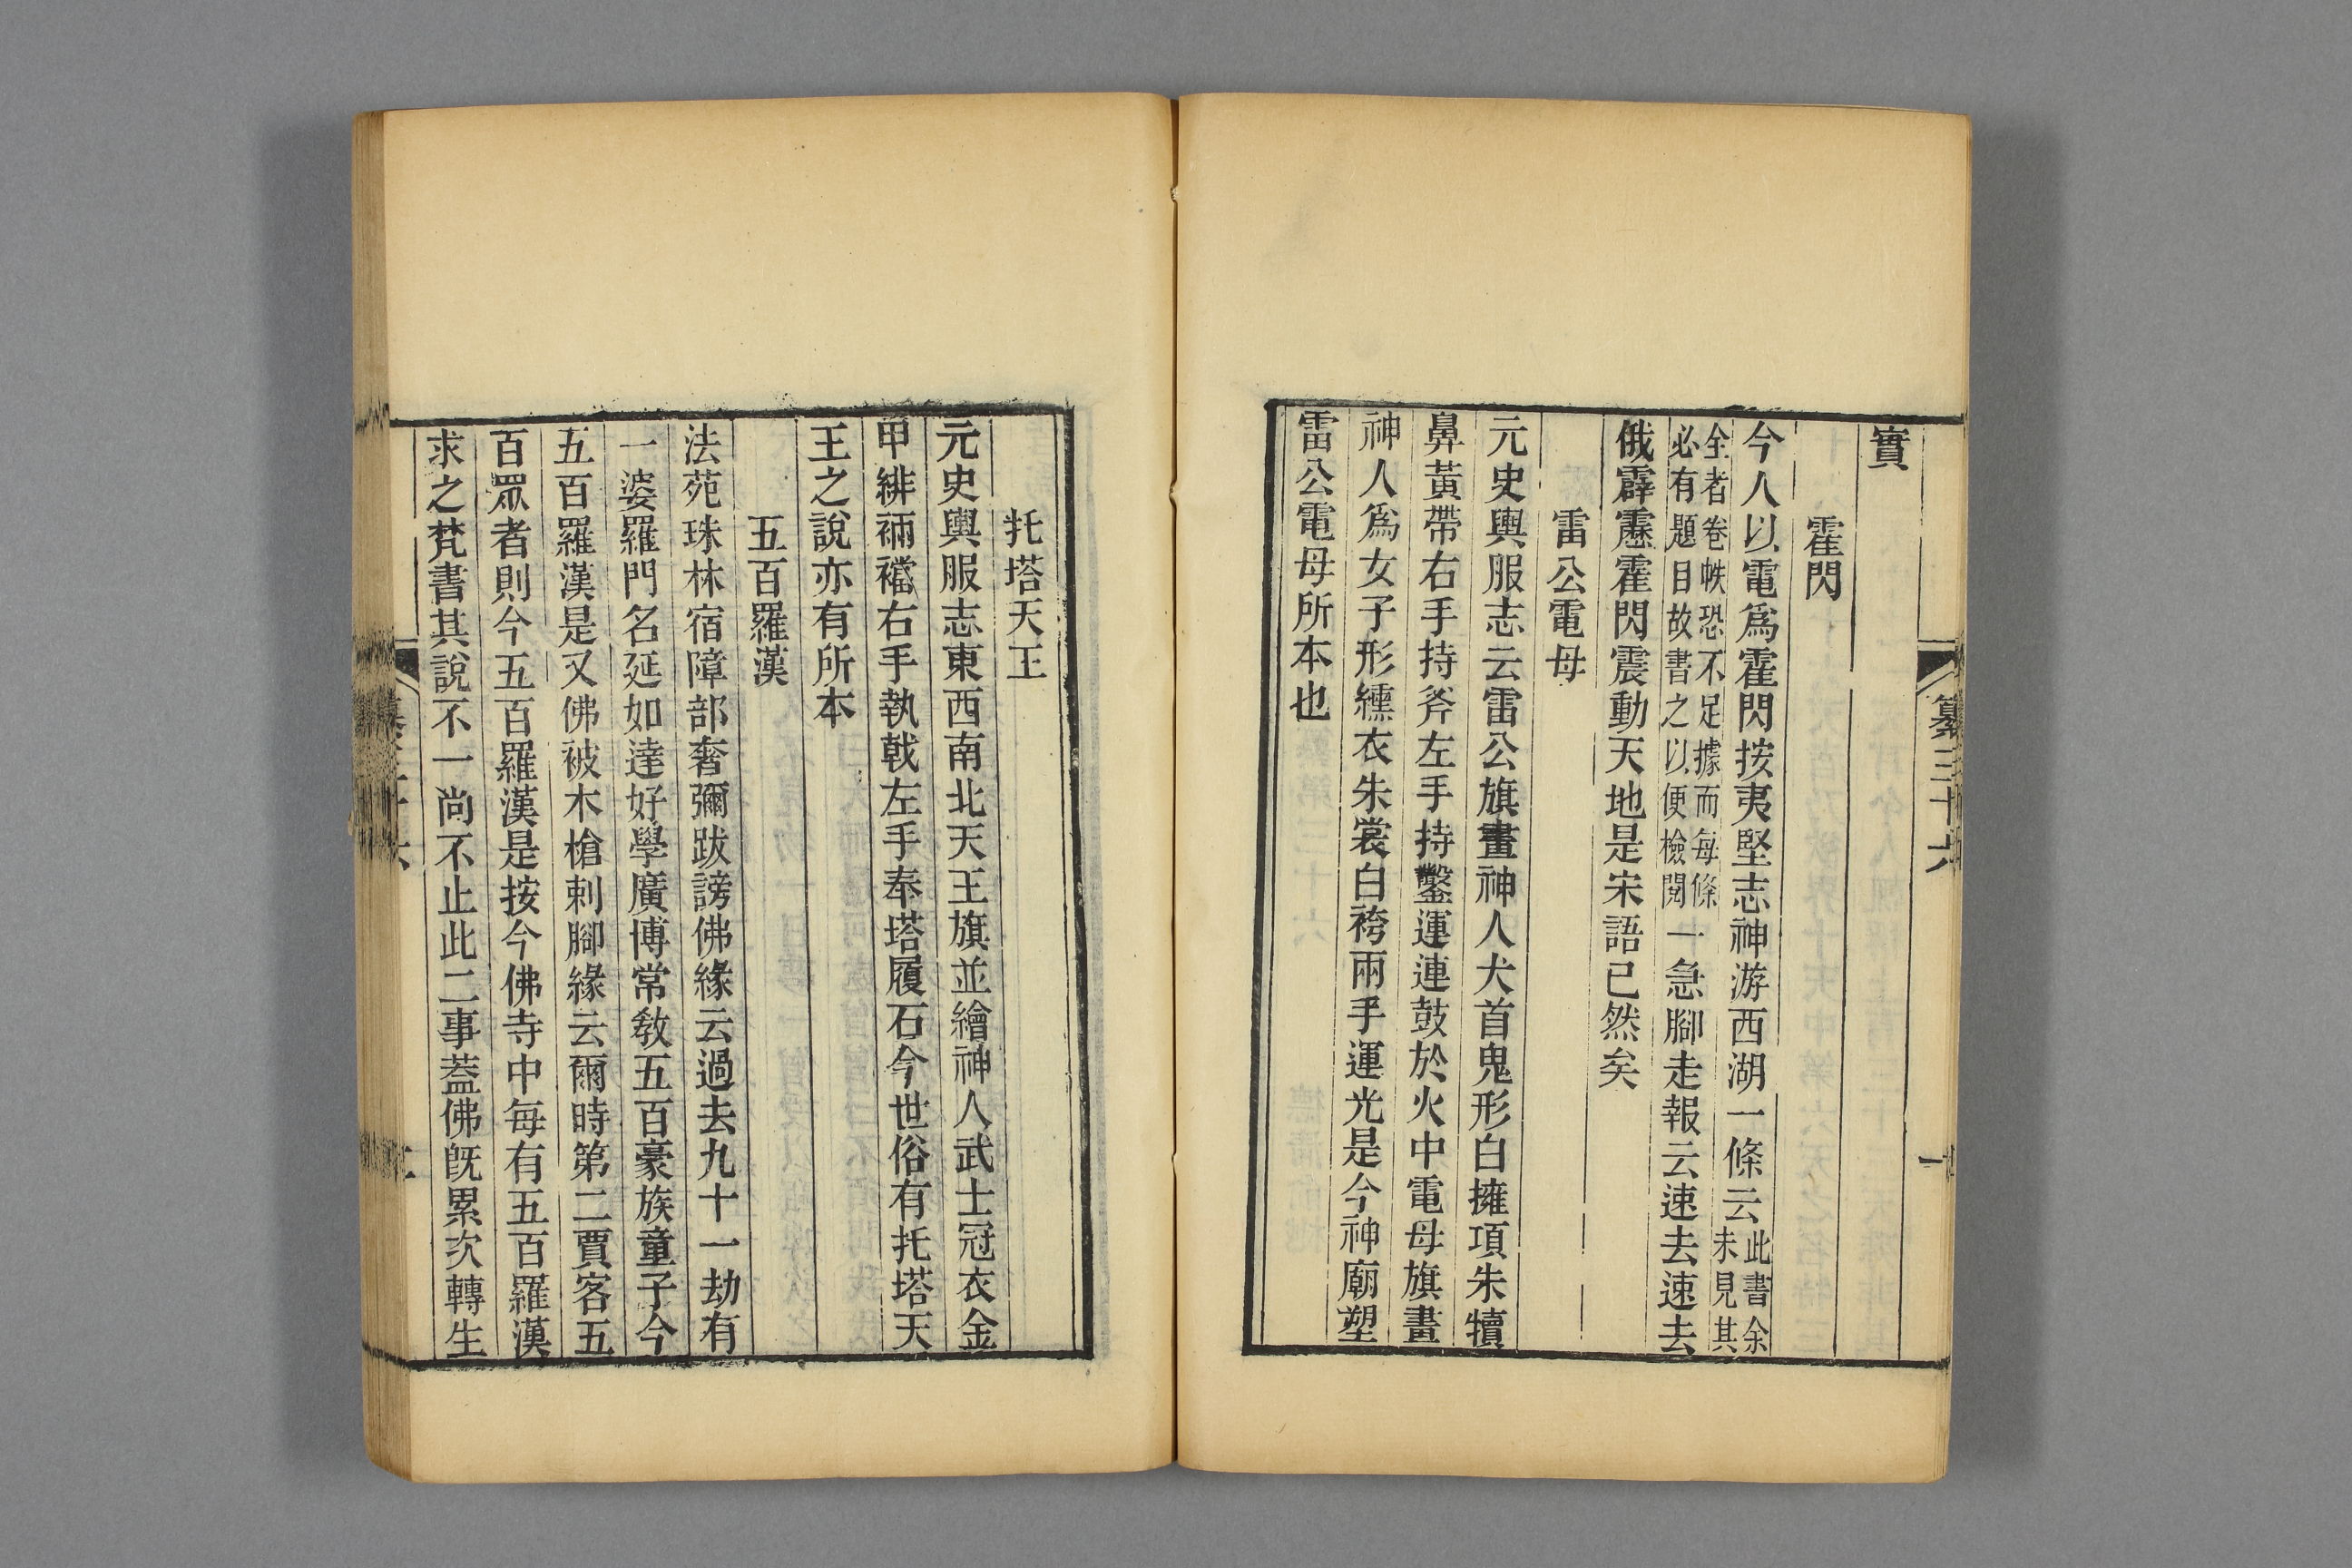 纂三十六
一
實
霍閃
今人以電爲霍閃按夷堅志神游西湖一條云此書余未見其
全者卷帙恐不足據而每條必有題目故書之以便檢閱一急腳走報云速去速去
俄霹靂霍閃震動天地是宋語已然矣
雷公電母
元史輿服志云雷公旗畫神人犬首鬼形白擁項朱犢
鼻黃帶右手持斧左手持鑿運連鼓於火中電母旗畫
神人爲女子形纁衣朱裳白袴兩手運光是今神廟塑
雷公電母所本也
托塔天王
元史輿服志東西南北天王旗並繪神人武士冠衣金
甲緋裲襠右手執戟左手奉塔履石今世俗有托塔天
王之說亦有所本
五百羅漢
法苑珠林宿障部奢彌跋謗佛緣云過去九十一劫有
一婆羅門名延如達好學廣博常敎五百豪族童子今
五百羅漢是又佛被木槍刺腳緣云爾時第二賈客五
百眾者則今五百羅漢是按今佛寺中每有五百羅漢
求之梵書其說不一尚不止此二事蓋佛旣累次轉生